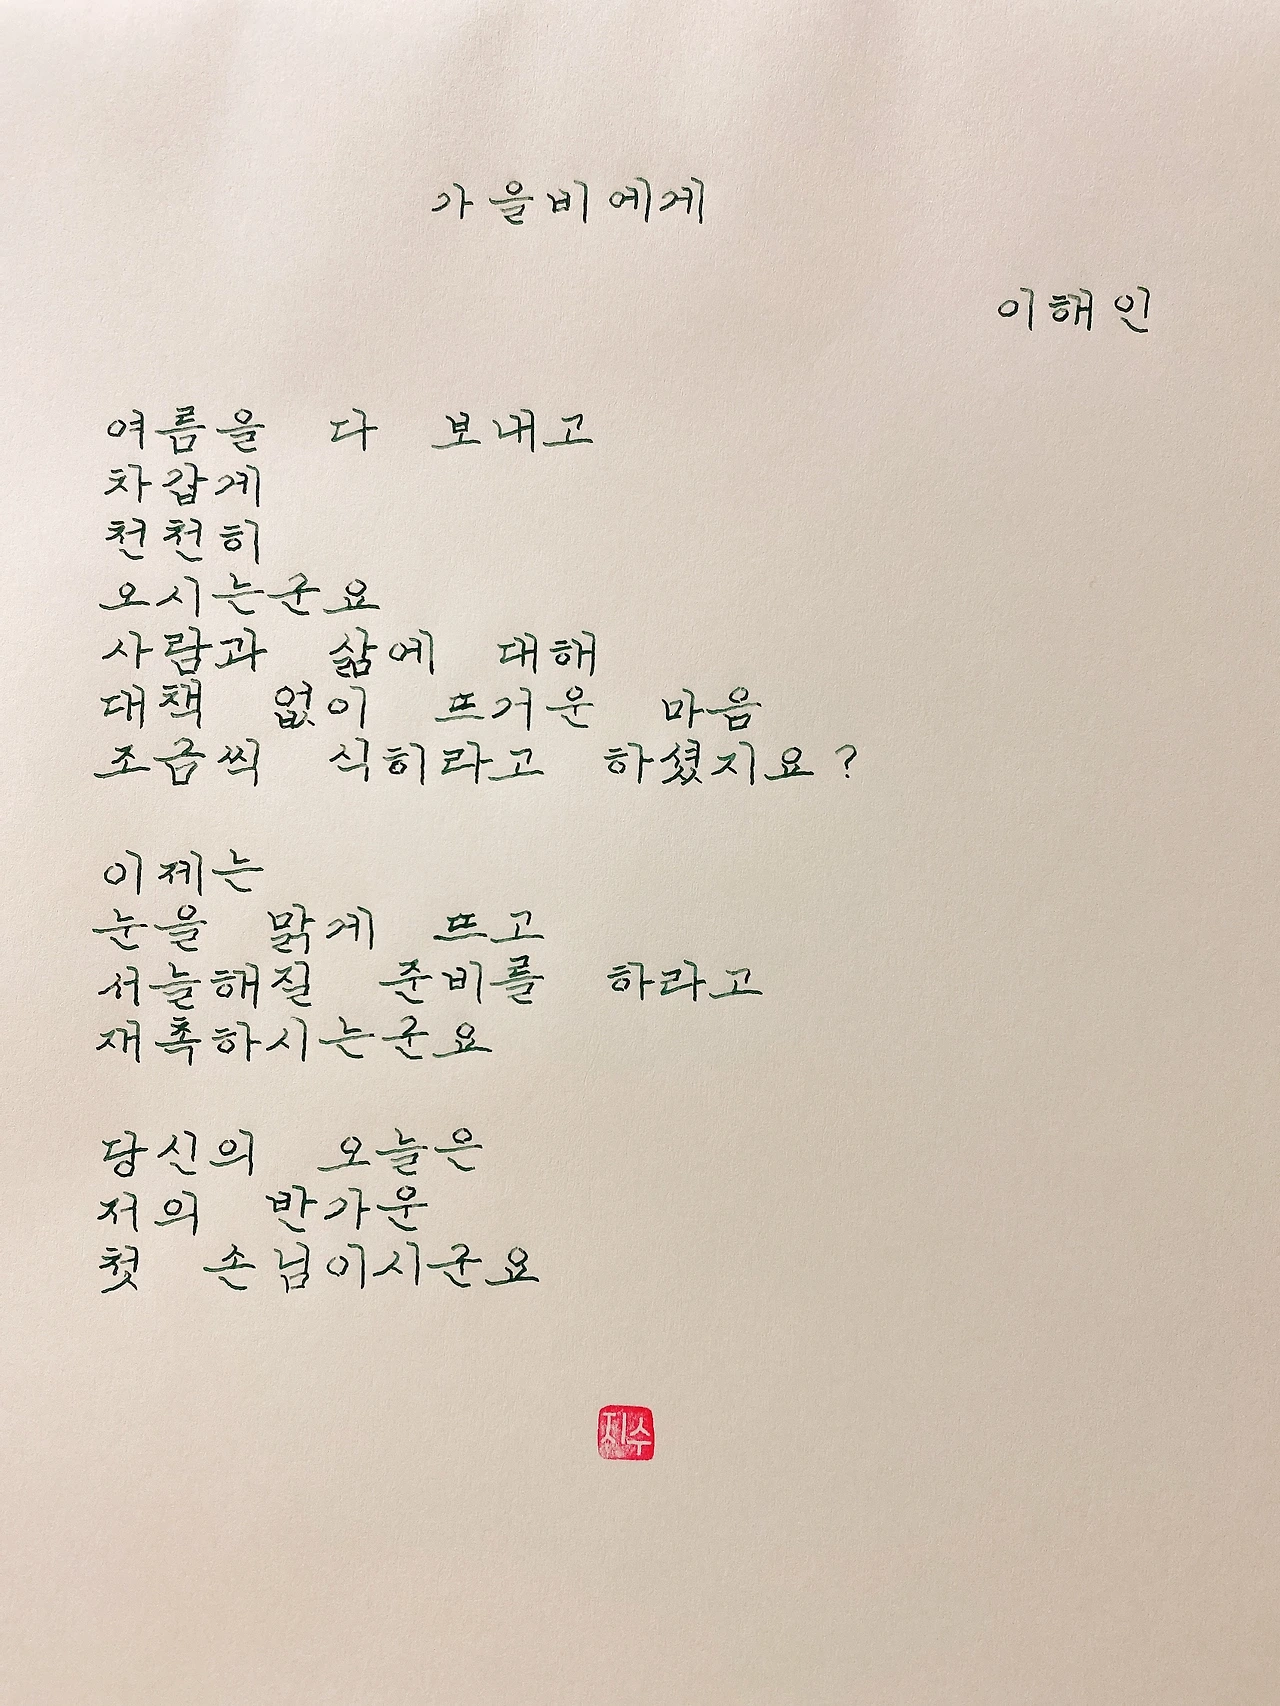 가을비에게
이해인
여름을 다 보내고
차갑게
천천히
오시는군요
사람과 삶에 대해
대책 없이 뜨거운 마음
조금씩 식히라고 하셨지요?
이제는
눈을 맑게 뜨고
서늘해질 준비를 하라고
재촉하시는군요
당신의 오늘은
저의 반가운
첫 손님이시군요
지수